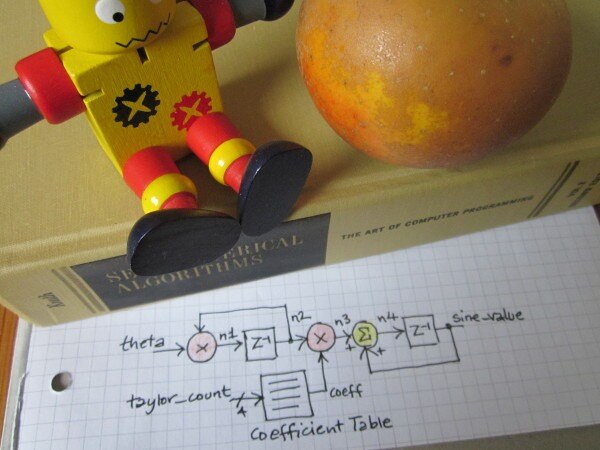 THE ART OF COMPUTER PROGRAMMING
ALGORITHMS
Knuth
theta
×
n1
Z⁻¹
n2
×
n3
Σ
+
+
n4
Z⁻¹
sine_value
taylor_count
4
coeff
Coefficient Table